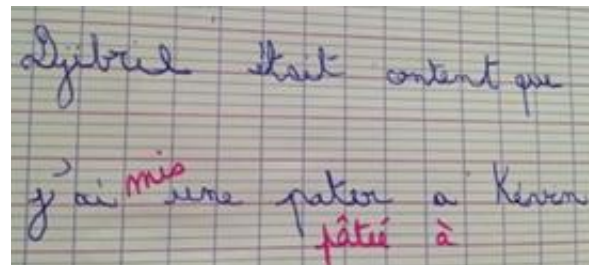 Djibril était content que
j'ai mis une pater a Kévin
pâtée à